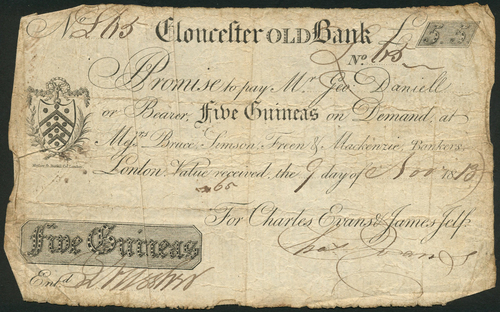 No £65 Gloucester OLD Bank £ 5.5
No. 65
I Promise to pay Mr. Geo Daniell
or Bearer, Five Guineas on Demand, at
Messrs Bruce, Simson, Freer & Mackenzie, Bankers,
London Value received, the 9 day of Novr 1813
65
For Charles Evans & James Jelf
Chas Evans
Five Guineas
Entd